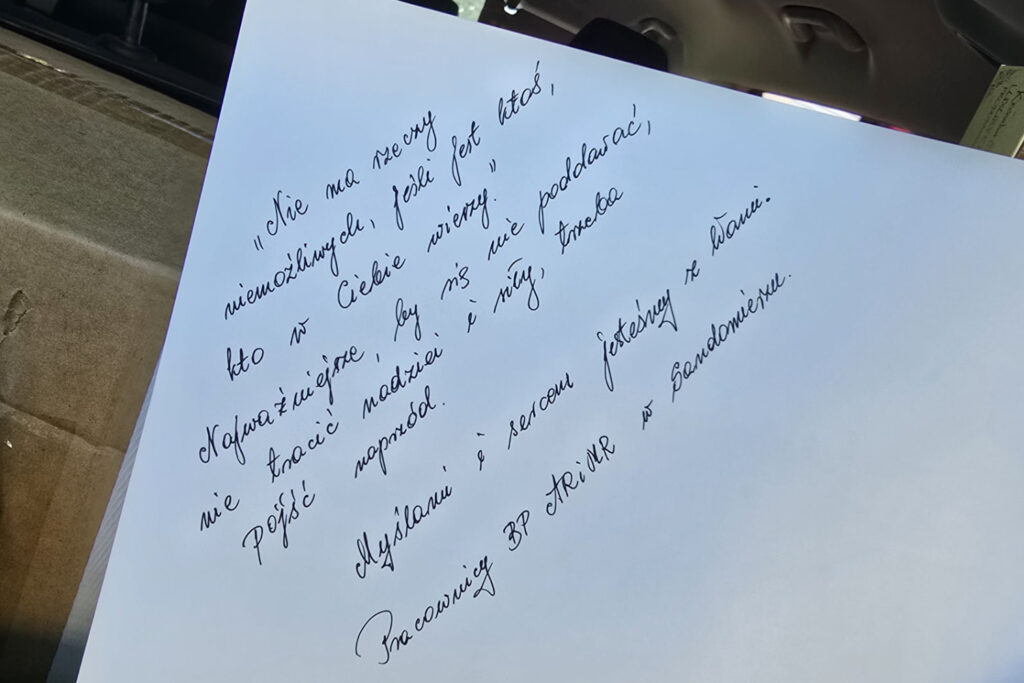 „Nie ma rzeczy
niemożliwych, jeśli jest ktoś,
kto w Ciebie wierzy."
Najważniejsze, by się nie poddawać,
nie tracić nadziei i siły, trzeba
pójść naprzód.
Myślami i sercem jesteśmy z Wami.
Pracownicy BP ARiMR w Sandomierzu.